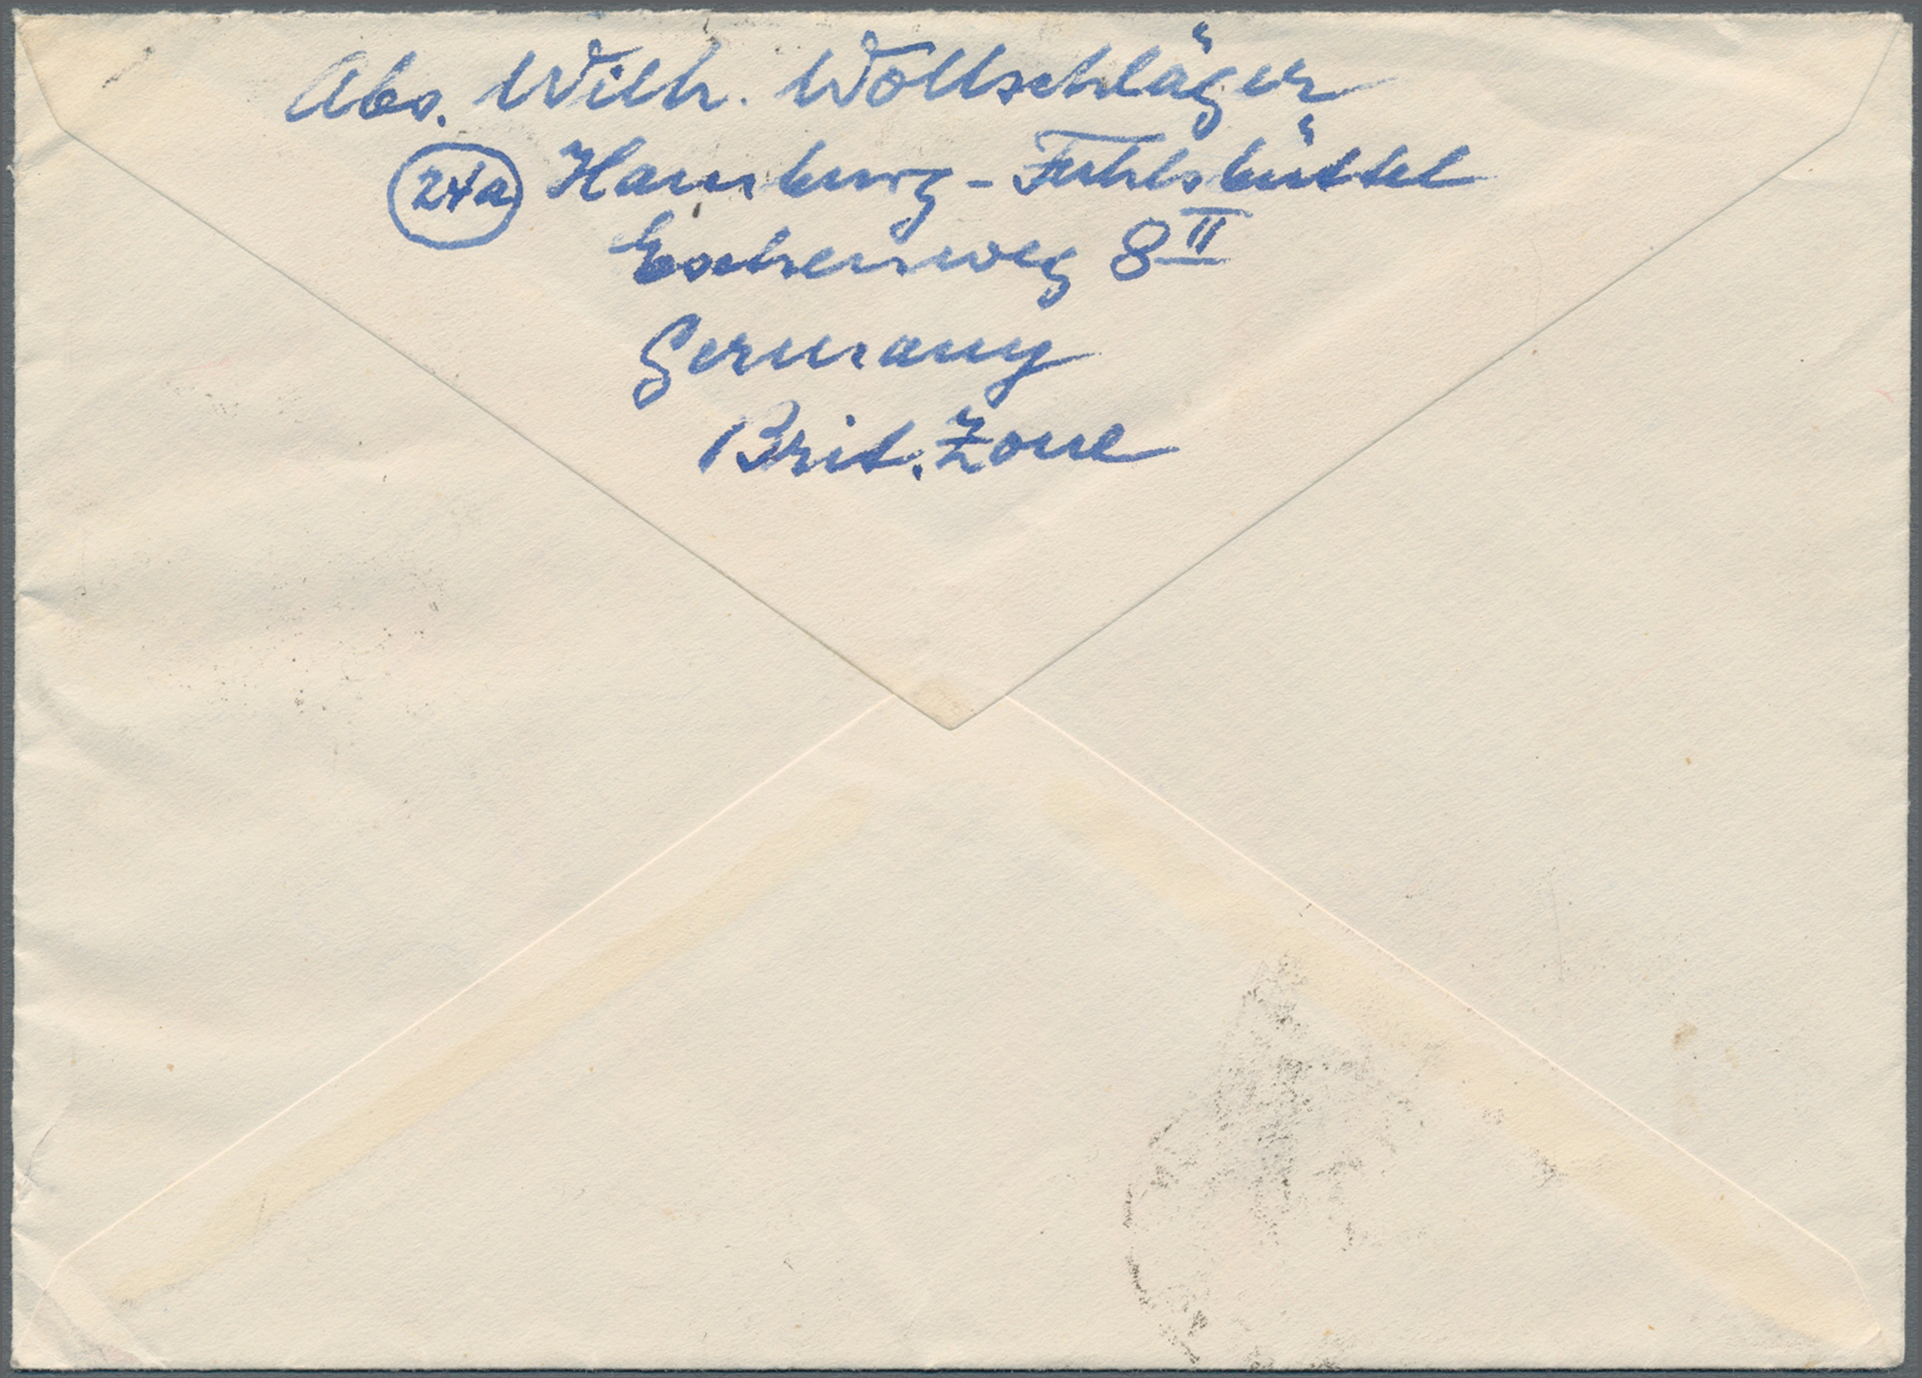 Abs. Wilh. Wollschläger
24a Hamburg-Fuhlsbüttel
Eschenweg 8 II
Germany
Brit. Zone